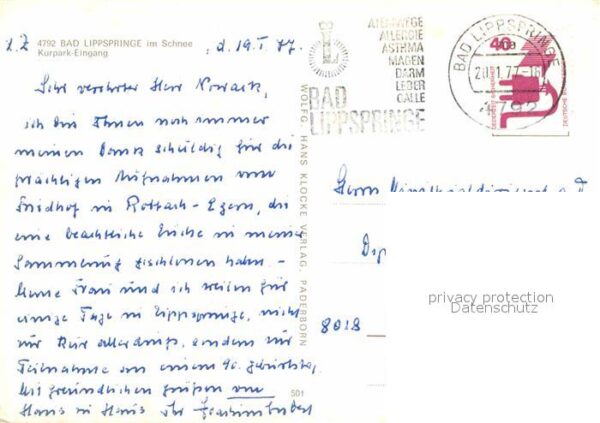 4792 BAD LIPPSPRINGE im Schnee
Kurpark-Eingang
z.Z , d. 19. I. 77.
Sehr verehrter Herr Nowack,
ich bin Ihnen noch immer
meinen Dank schuldig für die
prächtigen Aufnahmen vom
Friedhof in Rottach-Egern, die
eine beachtliche Lücke in meiner
Sammlung geschlossen haben. -
Meine Frau und ich weilen für
einige Tage in Lippspringe, nicht
zur Kur allerdings, sondern zur
Teilnahme an einem 90. Geburtstag.
Mit freundlichen Grüßen von
Haus zu Haus Ihr
WOLFG. HANS KLOCKE VERLAG, PADERBORN
501
ATEMWEGE
ALLERGIE
ASTHMA
MAGEN
DARM
LEBER
GALLE
BAD
LIPPSPRINGE
BAD LIPPSPRINGE
20.-1.77-18
4792
40
DEUTSCHE BUNDESPOST
Herrn
8018
privacy protection
Datenschutz